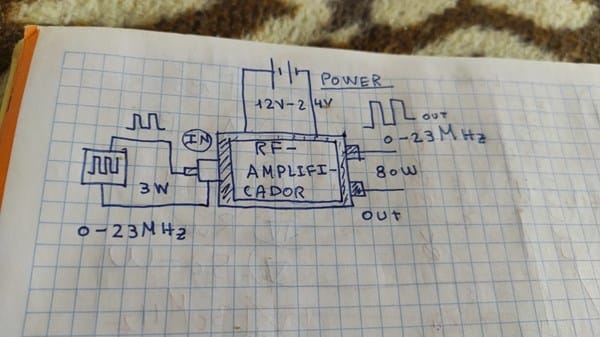 POWER
12V-24V
OUT
IN
0-23MHz
RF-
AMPLIFI-
CADOR
80W
3W
OUT
0-23MHz